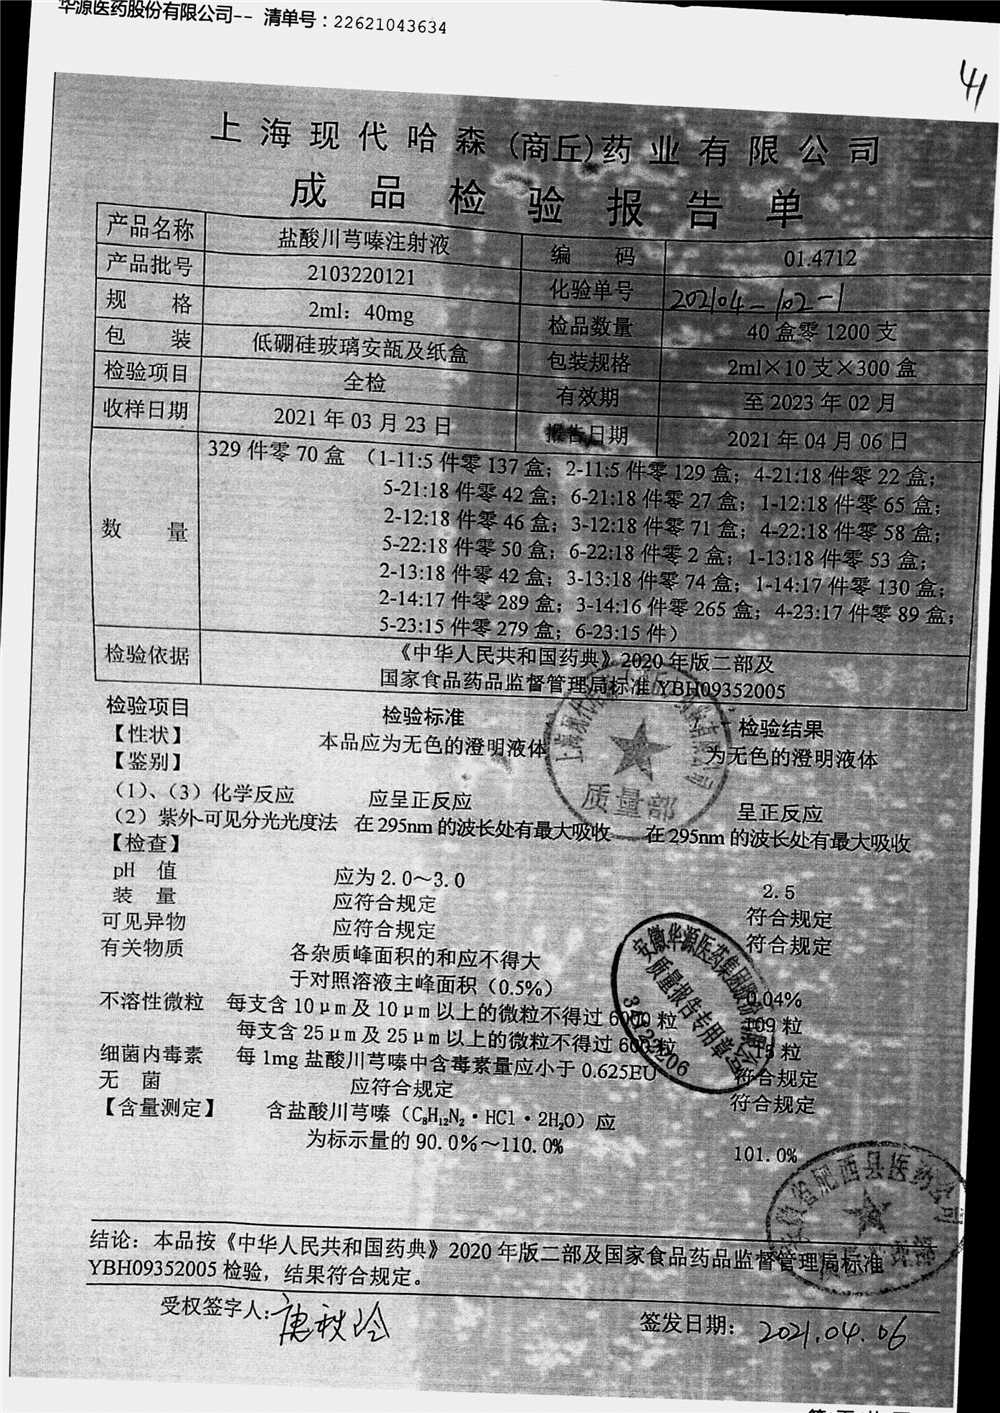 华源医药股份有限公司-- 清单号：22621043634
41
上海现代哈森(商丘)药业有限公司
成品检验报告单
产品名称 盐酸川芎嗪注射液 编码 01.4712
产品批号 2103220121 化验单号 202104-102-1
规格 2ml：40mg 检品数量 40盒零1200支
包装 低硼硅玻璃安瓿及纸盒 包装规格 2ml×10支×300盒
检验项目 全检 有效期 至2023年02月
收样日期 2021年03月23日 报告日期 2021年04月06日
数量 329件零70盒（1-11:5件零137盒；2-11:5件零129盒；4-21:18件零22盒；
5-21:18件零42盒；6-21:18件零27盒；1-12:18件零65盒；
2-12:18件零46盒；3-12:18件零71盒；4-22:18件零58盒；
5-22:18件零50盒；6-22:18件零2盒；1-13:18件零53盒；
2-13:18件零42盒；3-13:18件零74盒；1-14:17件零130盒；
2-14:17件零289盒；3-14:16件零265盒；4-23:17件零89盒；
5-23:15件零279盒；6-23:15件）
检验依据 《中华人民共和国药典》2020年版二部及
国家食品药品监督管理局标准YBH09352005
检验项目 检验标准 检验结果
【性状】 本品应为无色的澄明液体 为无色的澄明液体
【鉴别】
（1）、（3）化学反应 应呈正反应 呈正反应
（2）紫外-可见分光光度法 在295nm的波长处有最大吸收 在295nm的波长处有最大吸收
【检查】
pH 值 应为2.0～3.0 2.5
装量 应符合规定 符合规定
可见异物 应符合规定 符合规定
有关物质 各杂质峰面积的和应不得大
于对照溶液主峰面积（0.5%） 0.04%
不溶性微粒 每支含10μm及10μm以上的微粒不得过6000粒 109粒
每支含25μm及25μm以上的微粒不得过600粒 15粒
细菌内毒素 每1mg盐酸川芎嗪中含毒素量应小于0.625EU 符合规定
无菌 应符合规定 符合规定
【含量测定】 含盐酸川芎嗪（C₈H₁₂N₂·HCl·2H₂O）应
为标示量的90.0%～110.0% 101.0%
质量部
安徽华源医药集团股份有限公司
质量报告专用章
肥西县医药公司
结论：本品按《中华人民共和国药典》2020年版二部及国家食品药品监督管理局标准
YBH09352005检验，结果符合规定。
受权签字人： 签发日期：2021.04.06